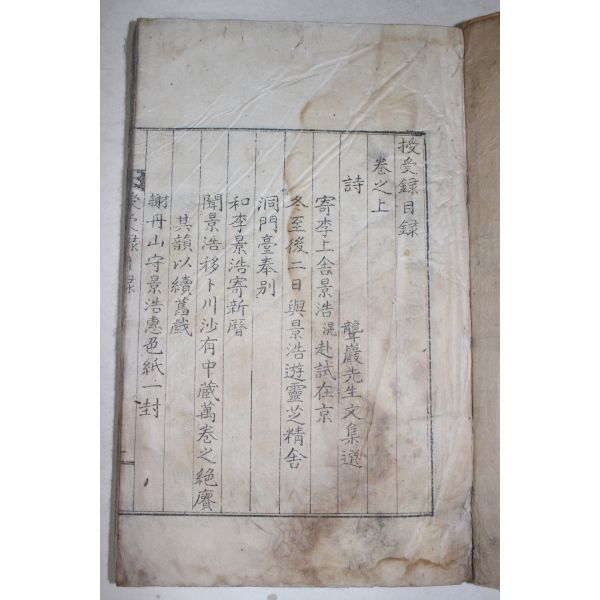 授受錄目錄
卷之上
詩 聾巖先生文集選
寄李上舍景浩滉赴試在京
冬至後二日與景浩遊靈芝精舍
洞門臺奉別
和李景浩寄新曆
聞景浩移卜川沙有中藏萬卷之絶賡
其韻以續舊戲
謝丹山守景浩惠色紙一封
授受錄目錄 一